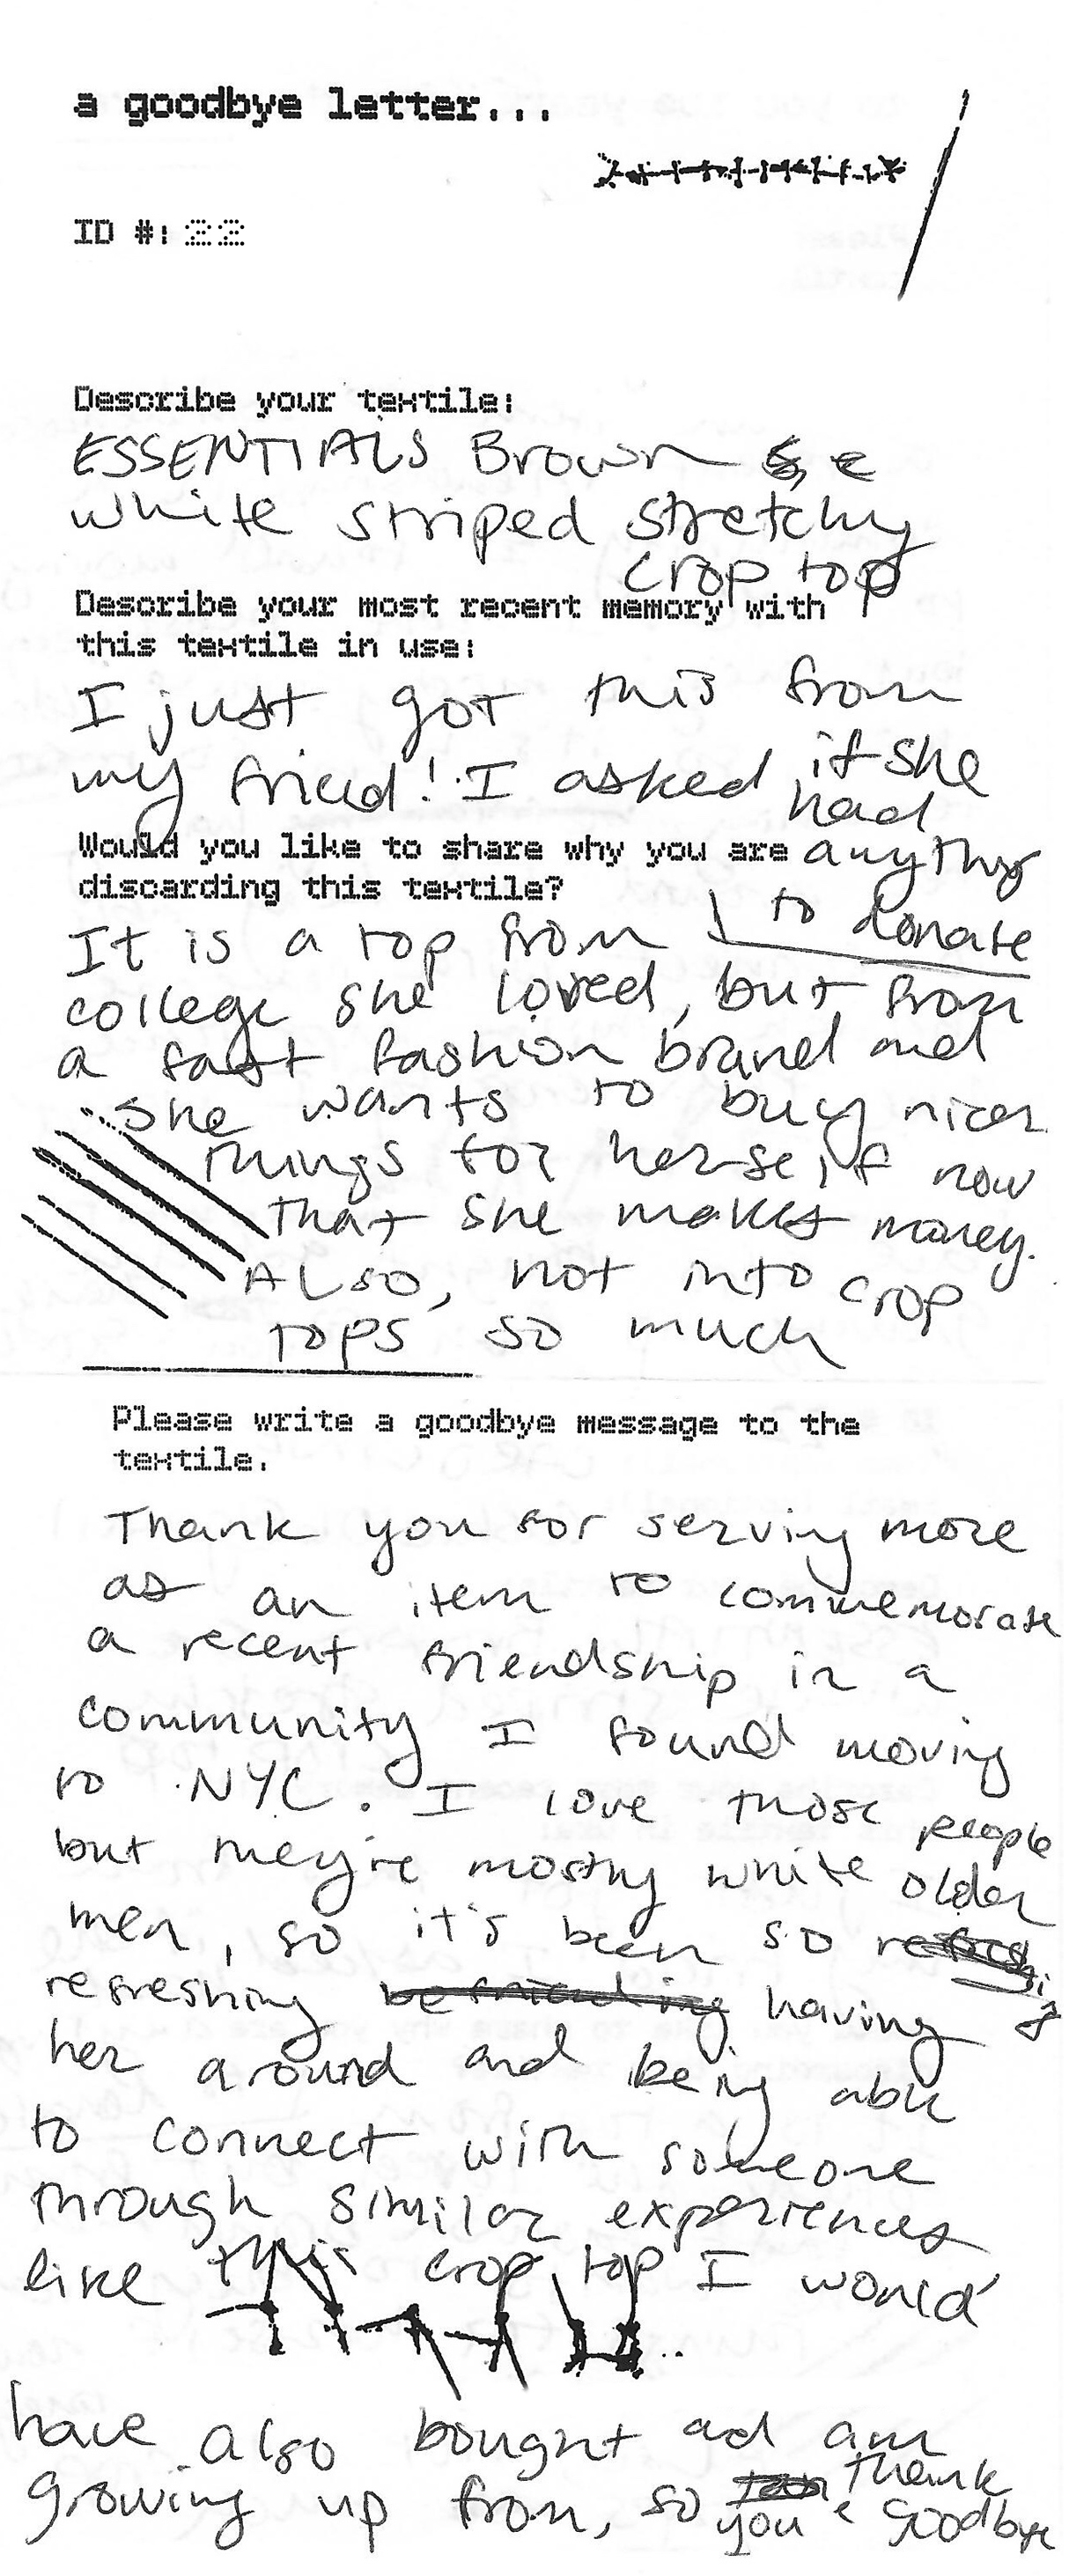 a goodbye letter...
ID #: 22
Describe your textile:
ESSENTIALS Brown &
white striped stretchy
crop top
Describe your most recent memory with
this textile in use:
I just got this from
my friend! I asked if she
had
Would you like to share why you are
anything
discarding this textile?
to donate
It is a top from
college she loved, but from
a fast fashion brand and
she wants to buy nicer
things for herself now
that she makes money.
Also, not into crop
tops so much
Please write a goodbye message to the
textile.
Thank you for serving more
as an item to commemorate
a recent friendship in a
community I found moving
to NYC. I love those people
but they're mostly white older
men, so it's been so
refreshing befriending having
her around and being able
to connect with someone
through similar experiences
like this crop top I would
have also bought ad am
growing up from, so thank
you & Goodbye